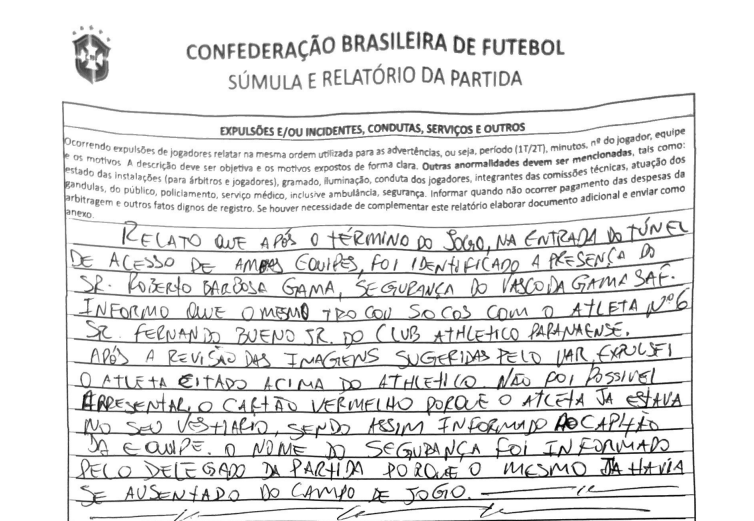 CONFEDERAÇÃO BRASILEIRA DE FUTEBOL
SÚMULA E RELATÓRIO DA PARTIDA
EXPULSÕES E/OU INCIDENTES, CONDUTAS, SERVIÇOS E OUTROS
Ocorrendo expulsões de jogadores relatar na mesma ordem utilizada para as advertências, ou seja, período (1T/2T), minutos, nº do jogador, equipe
e os motivos. A descrição deve ser objetiva e os motivos expostos de forma clara. Outras anormalidades devem ser mencionadas, tais como:
estado das instalações (para árbitros e jogadores), gramado, iluminação, conduta dos jogadores, integrantes das comissões técnicas, atuação dos
gandulas, do público, policiamento, serviço médico, inclusive ambulância, segurança. Informar quando não ocorrer pagamento das despesas da
arbitragem e outros fatos dignos de registro. Se houver necessidade de complementar este relatório elaborar documento adicional e enviar como
anexo.
RELATO QUE APÓS O TÉRMINO DO JOGO, NA ENTRADA DO TÚNEL
DE ACESSO DE AMBAS EQUIPES, FOI IDENTIFICADO A PRESENÇA DO
SR. ROBERTO BARBOSA GAMA, SEGURANÇA DO VASCO DA GAMA SAF.
INFORMO QUE O MESMO TROCOU SOCOS COM O ATLETA Nº6
SR FERNANDO BUENO JR. DO CLUB ATHLETICO PARANAENSE.
APÓS A REVISÃO DAS IMAGENS SUGERIDAS PELO VAR, EXPULSEI
O ATLETA CITADO ACIMA DO ATHLETICO. NÃO FOI POSSIVEL
APRESENTAR, O CARTÃO VERMELHO PORQUE O ATLETA JA ESTAVA
NO SEU VESTIARIO, SENDO ASSIM INFORMADO AO CAPITÃO
DA EQUIPE. O NOME DO SEGURANÇA FOI INFORMADO
PELO DELEGADO DA PARTIDA PORQUE O MESMO JA HAVIA
SE AUSENTADO DO CAMPO DE JOGO.